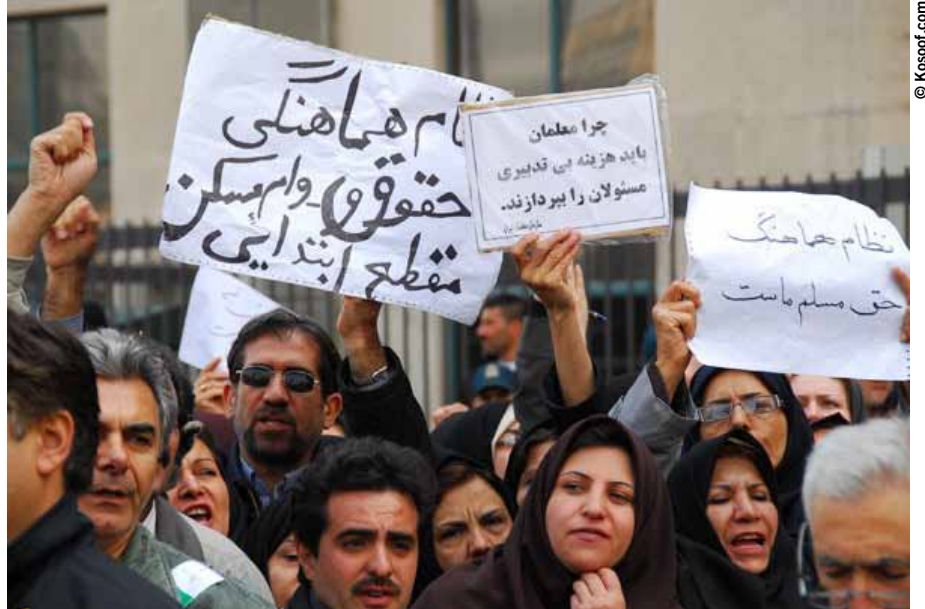 نظام هماهنگی
حقوق وام مسکن
مقطع ابتدایی
چرا معلمان
باید هزینه بی تدبیری
مسئولان را بپردازند.
نظام هماهنگ
حق مسلم ماست
© Kosoof.com